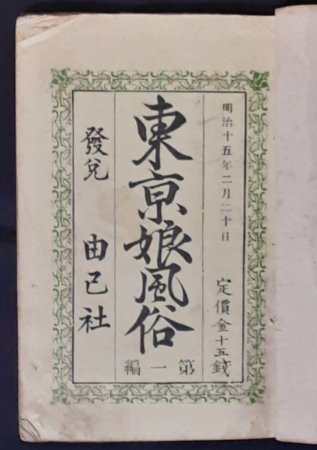 明治十五年二月二十日
定價金十五錢
東京娘風俗
第一編
發兌 由己社